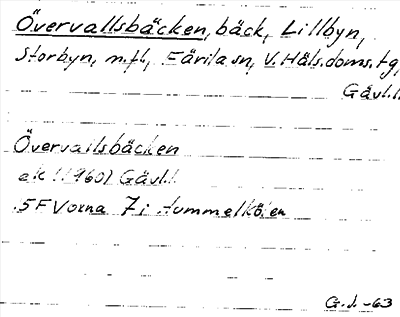 Övervallsbäcken, bäck, Lillbyn,
Storbyn, m.fl., Färila sn, V. Häls. doms. tg,
Gävl.l.
Övervallsbäcken
ek (1960) Gävl.l
5F Voxna 7i Hummelkölen
G.J. -63